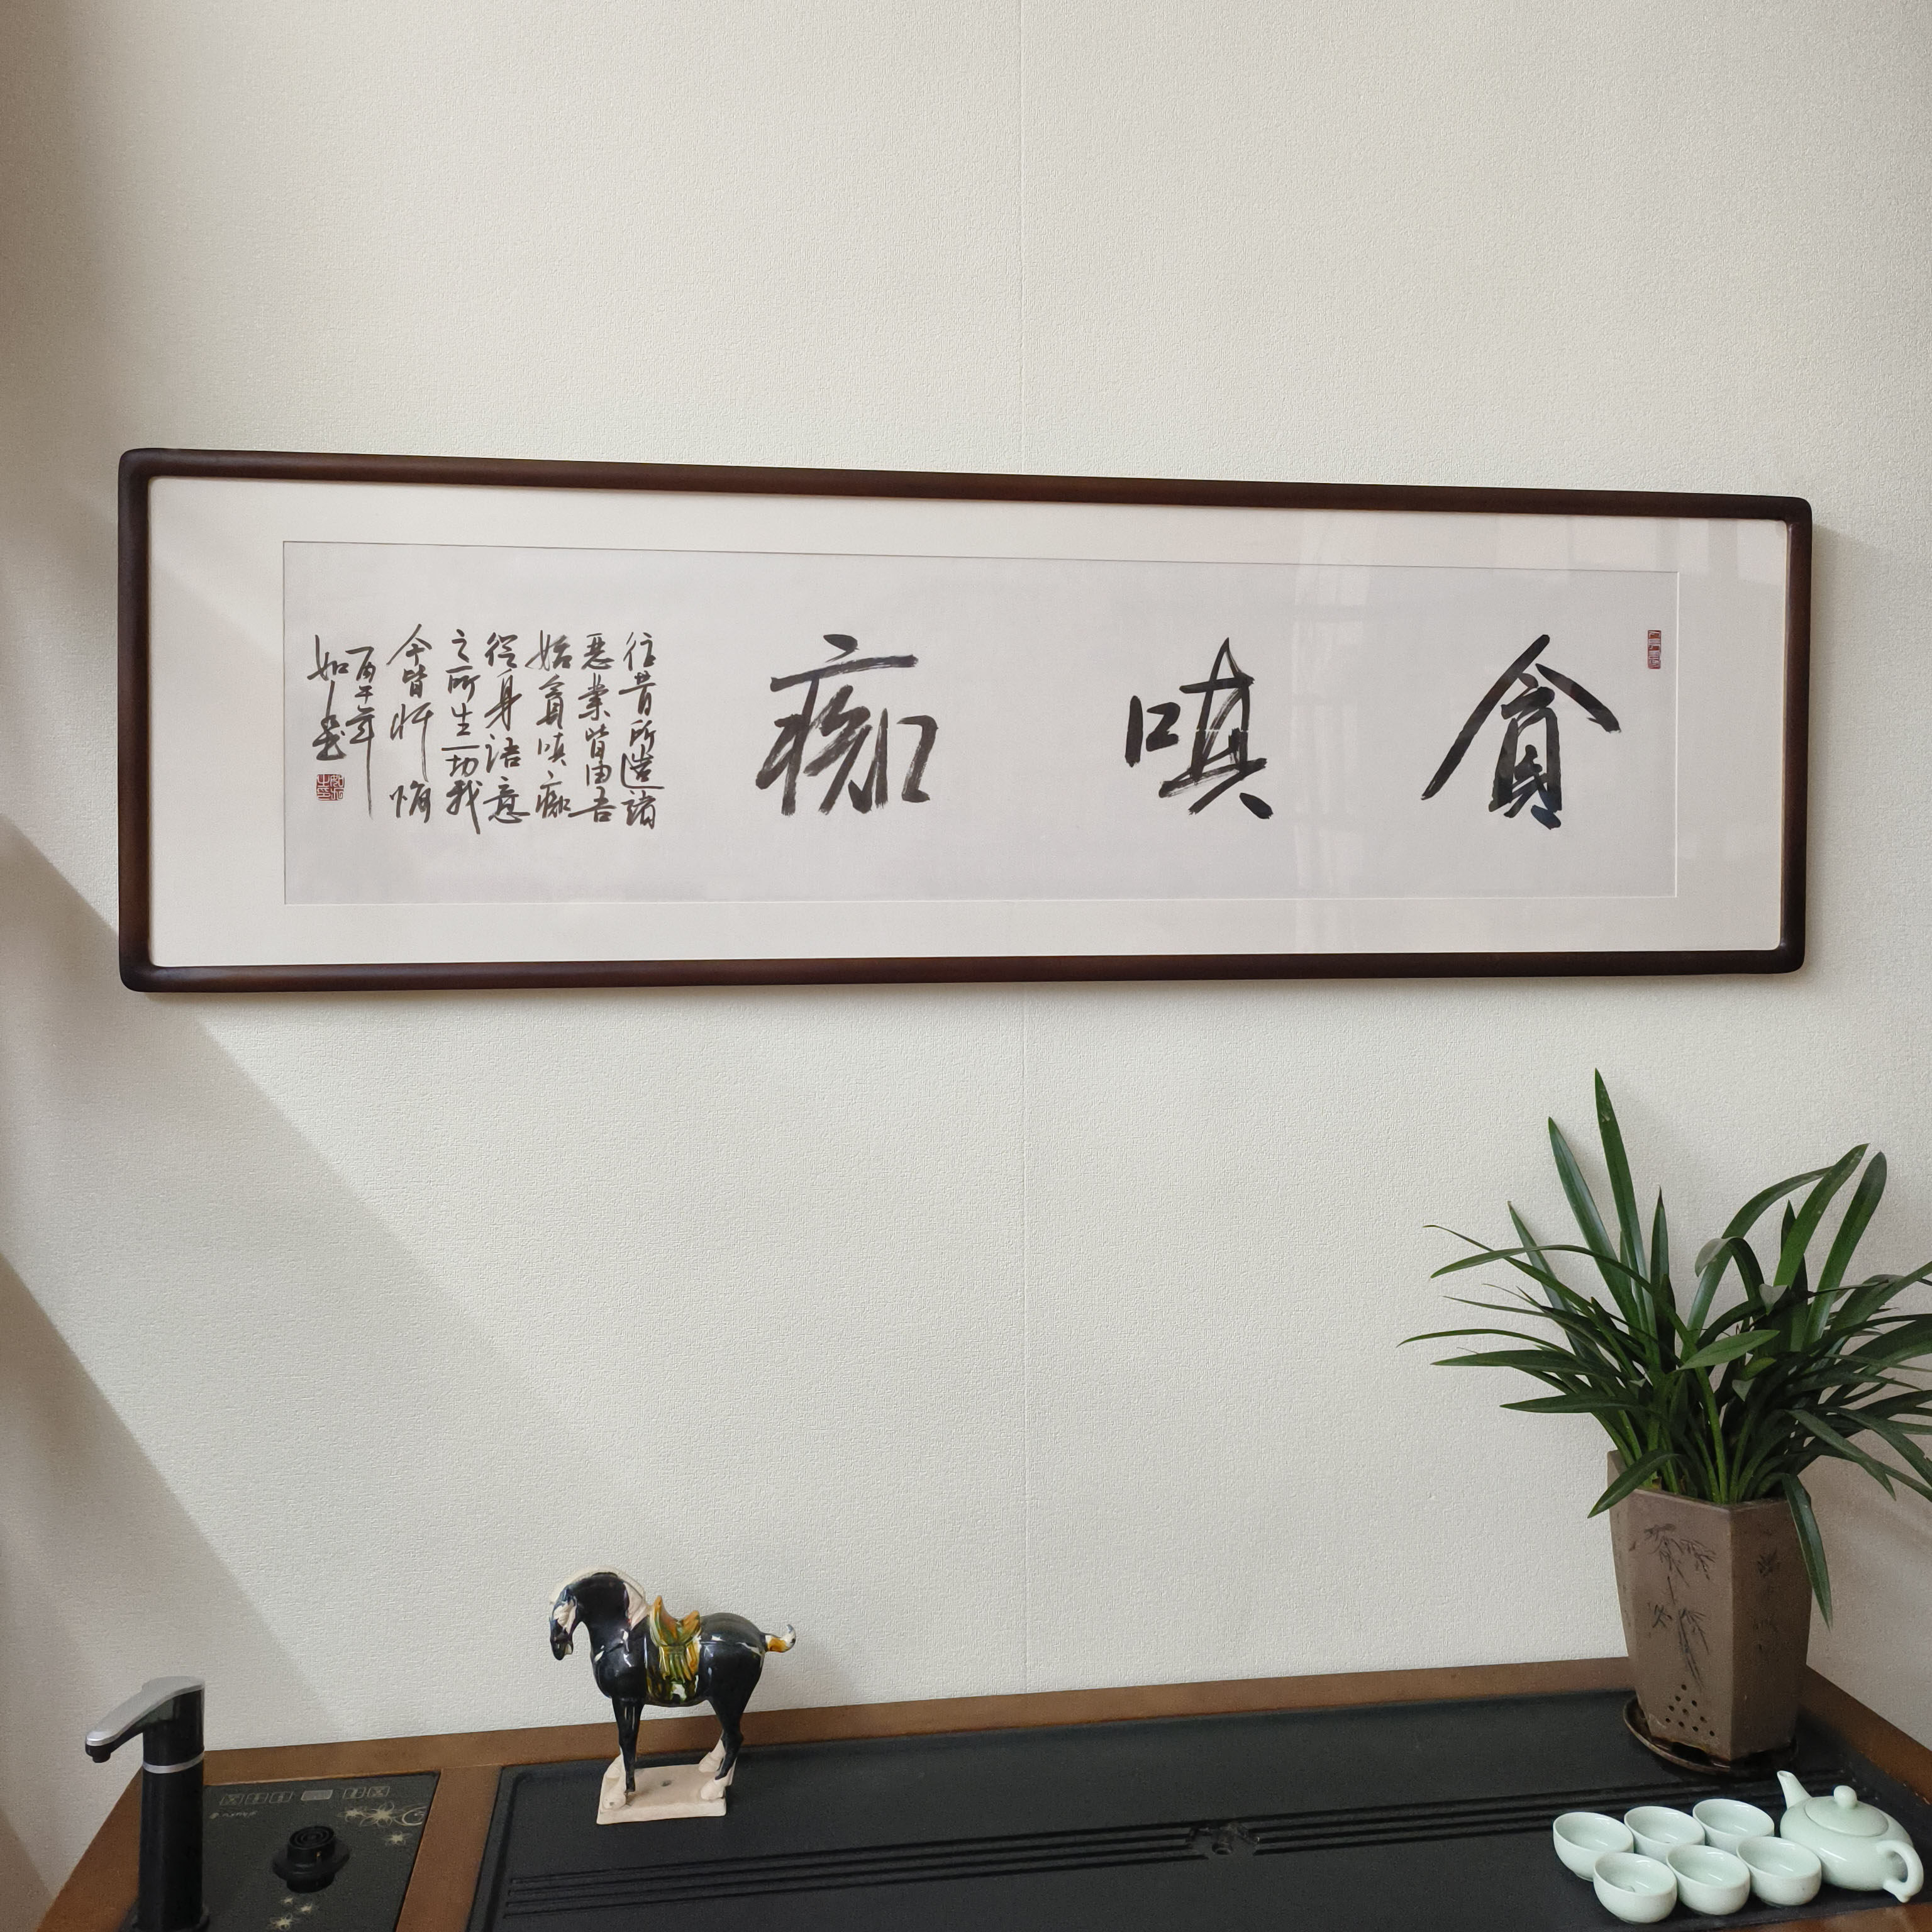 貪嗔痴
往昔所造諸
惡業皆由吾
始貪嗔痴
從身語意
之所生一切我
今皆忏悔
丙午年
如書